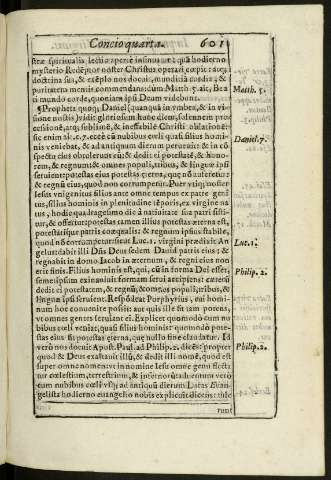 Concio quarta. 601
stræ spiritualis lectio aperte insinuat: quā hodierno
mysterio Redēptor noster Christus operari cœpit: atq;
doctrina sua, & exēplo nos docuit, munditiā cordis, &
puritatem mentis commendans: dum Matth. 5. ait, Bea
ti mundo corde, quoniam ipsi Deum videbunt.
Matth. 5.
¶ Propheta quoq; Daniel (quamuis in vmbra, & in vi
sione noctis) vidit gloriosum hunc diem, solennem pro
cessionē, atq; sublimē, & ineffabilē Christi oblationē:
sic enim ait. c. 7. ecce cū nubibus cæli quasi filius homi-
nis veniebat, & ad antiquum dierum peruenit: & in cō
Daniel. 7.
spectu eius obtulerunt eū: & dedit ei potestatē, & hono-
rem, & regnum: & omnes populi, tribus, & linguæ ipsi
seruient: potestas eius potestas æterna, quę nō auferetur:
& regnū eius, quod non corrumpetur. Puer vtiq; noster
Iesus vnigenitus filius ante omne tempus ex patre geni
tus, filius hominis in plenitudine tēporis, ex virgine na
tus, hodie quadragesimo die à natiuitate sua patri sisti-
tur, & offertur: potestas tamen illius potestas æterna est,
potestatíque patris coæqualis: & regnum ipsius stabile,
quod nō corrumpetur: sicut Luc. 1. virgini prædixit An
Luc. 1.
gelus: dabit illi Dñs Deus sedem Dauid patris eius: &
regnabit in domo Iacob in æternum, & regni eius non
erit finis. Filius hominis est, qui, cū in forma Dei esset,
Philip. 2.
semetipsum exinaniuit formam serui accipiens: cui
dedit ei potestatem, & regnū; & omnes populi, tribus, &
linguæ ipsi seruient. Respōdeat Porphyrius, cui homi-
num hoc conuenire possit: aut quis ille est tam potens,
vt omnes gentes seruiant ei. Explicet quomodo cum nu
bibus cœli veniat, quasi filius hominis: quomodo pote-
stas eius sit potestas æterna, quę nullo fine claudatur. Id
verò nos docuit Apost. Paul. ad Philip. 2. dicēs: propter
Philip. 2.
quod & Deus exaltauit illū, & dedit illi nomē, quod est
super omne nomen: vt in nomine Iesu omne genu flecta
tur cœlestium, terrestrium, & infernorū: aduentum verò
cum nubibus cœli vsq; ad antiquū dierum Lucas Euan-
gelista hodierno euangelio nobis explicuit dicens:
runt